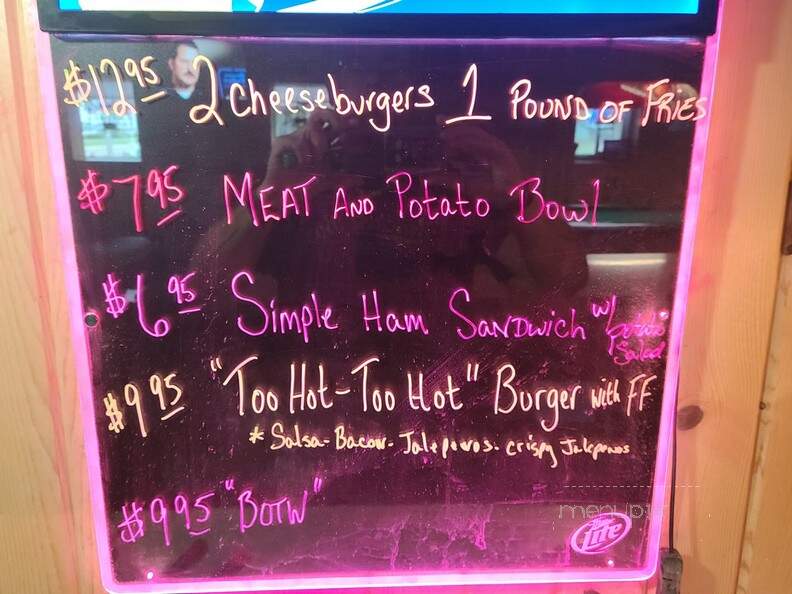 $12.95 2 cheeseburgers 1 POUND OF FRiES
$7.95 MEAT AND Potato Bowl
$6.95 Simple Ham SANDwich w/ potato Salad
$9.95 "Too Hot-Too Hot" Burger with FF
* Salsa-Bacon-Jalepenos-crispy Jalepenos
$9.95 "BOTW"
menupix
Lite